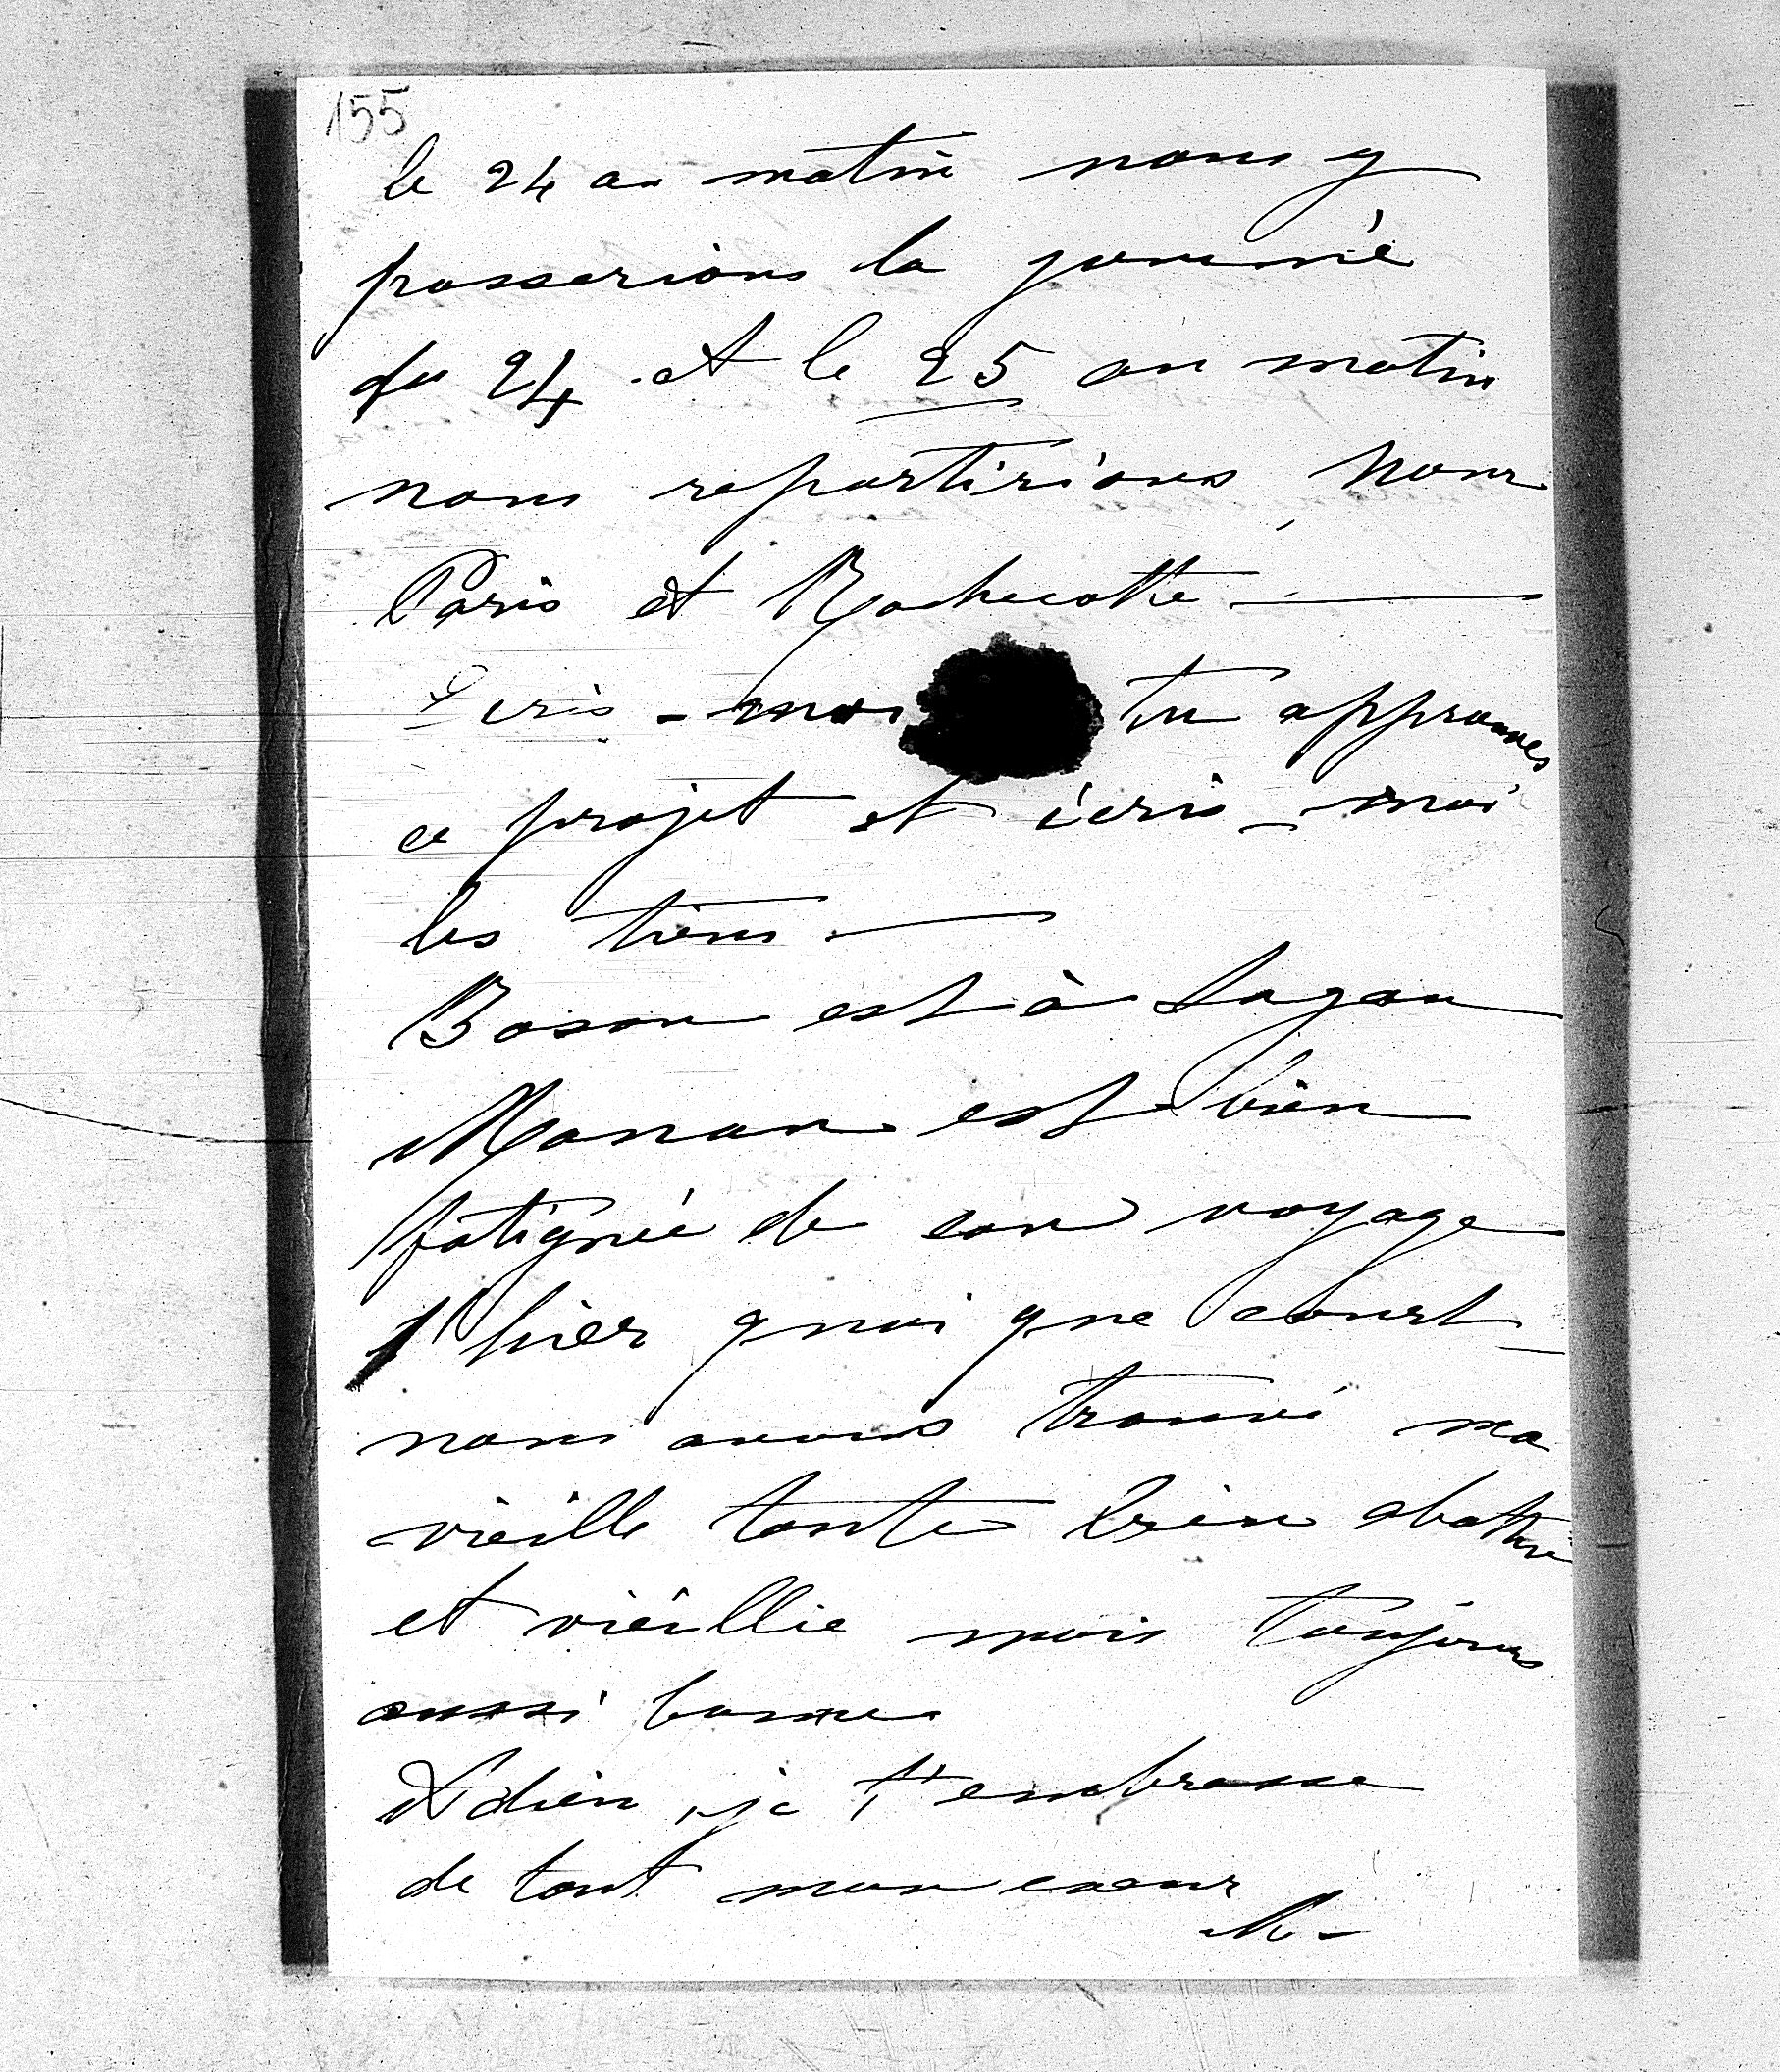 155
le 24 au matin nous y
passerions la journée
du 24 et le 25 au matin
nous repartirions pour
Paris et Rochecotte —
Ecris-moi tu approuves
ce projet et écris-moi
les tiens —
Boson est à Sagan
Maman est bien
fatiguée de son voyage
d'hier quoi que court —
nous avons trouvé ma
vieille tante bien abattue
et vieillie mais toujours
aussi bonne
Adieu, je t'embrasse
de tout mon coeur
M-